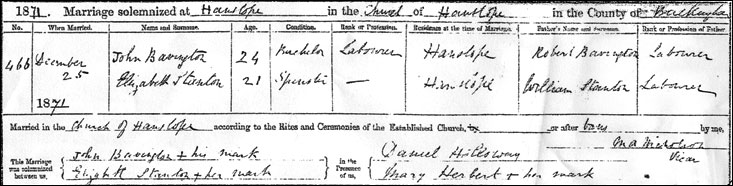 1871. Marriage solemnized at Hanslope in the Church of Hanslope in the County of
No. When Married. Name and Surname. Age. Condition. Rank or Profession. Residence at the time of Marriage. Father's Name and Surname. Rank or Profession of Father.
466 December 25 1871 John Bavington 24 Bachelor Labourer Hanslope Robert Bavington Labourer
Elizabeth Stanton 21 Spinster — Hanslope William Stanton Labourer
Married in the Church of Hanslope according to the Rites and Ceremonies of the Established Church, by or after banns by me,
M A Nicholson
Vicar
This Marriage was solemnized between us,
John Bavington + his mark
Elizabeth Stanton + her mark
in the Presence of us,
Daniel
Mary Herbert + her mark